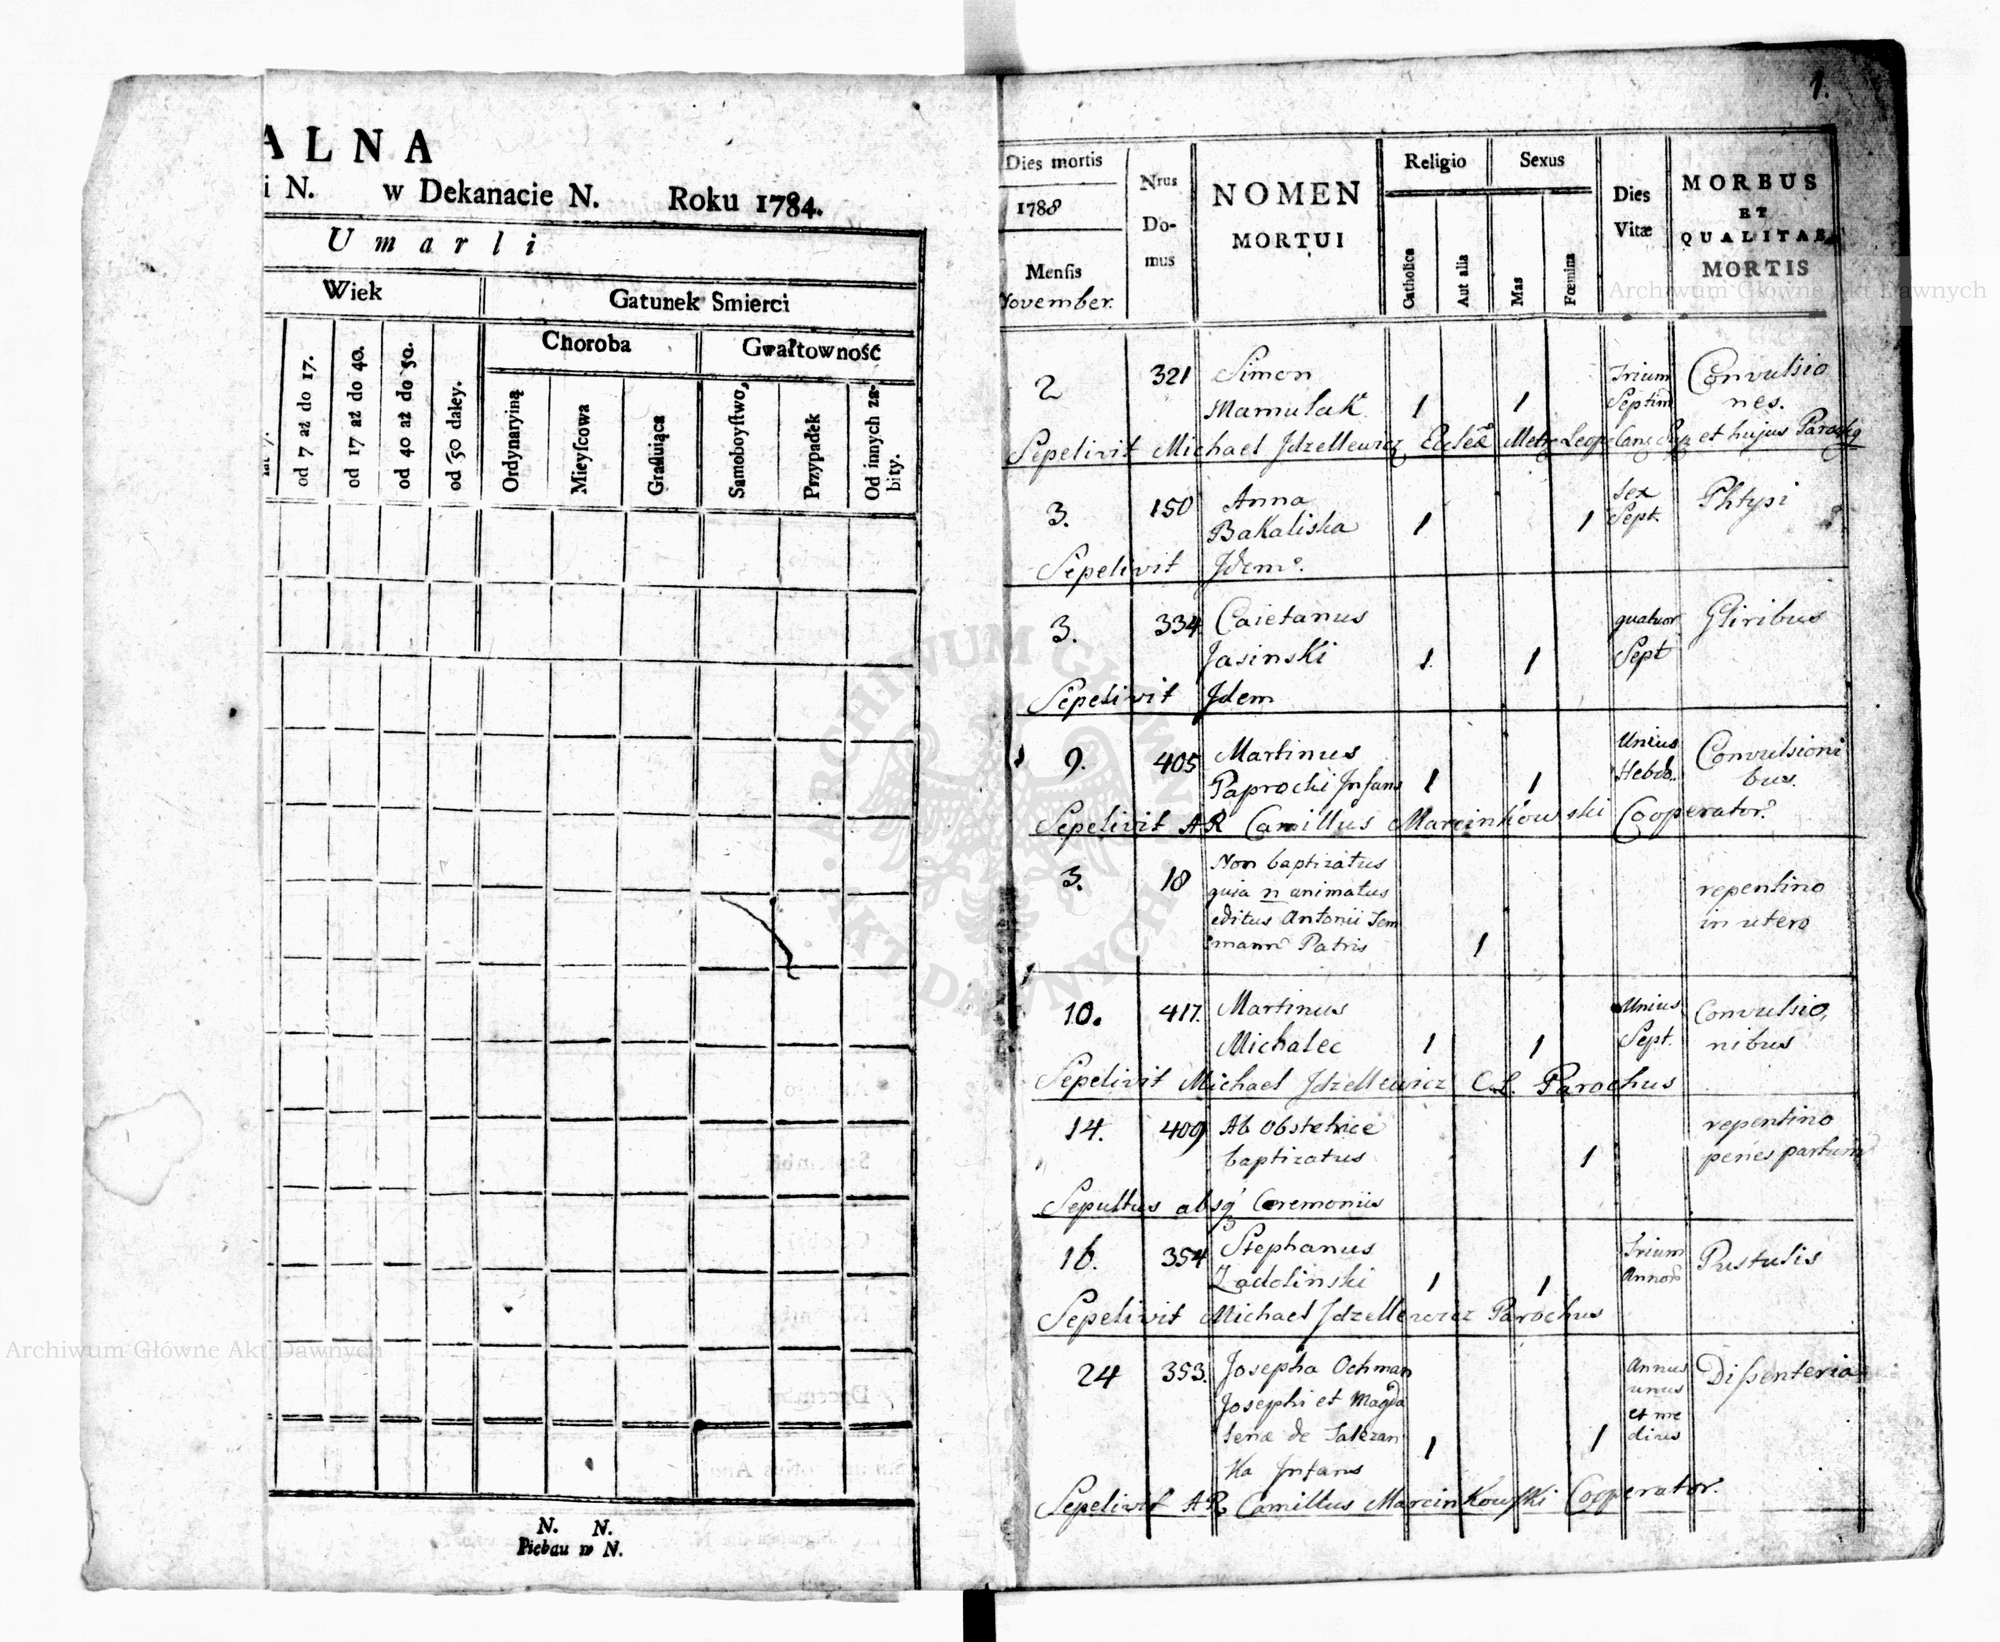 ALNA
i N. w Dekanacie N. Roku 1784.
Umarli
Wiek
Gatunek Smierci
Choroba
Gwałtowność
od 7 aż do 17.
od 17 aż do 40.
od 40 aż do 50.
od 50 daley.
Ordynaryiną
Mieyſcowa
Graduiąca
Samoboyſtwo,
Przypadek
Od innych za-
bity.
N. N.
Pleban w N.
1.
Dies mortis
1788
Menſis
November.
Nrus
Do-
mus
NOMEN
MORTUI
Religio
Catholica
Aut alia
Sexus
Mas
Fœmina
Dies
Vitæ
MORBUS
ET
QUALITAS
MORTIS
2 321 Simon Trium Convulsio
Mamulak 1 1 Septim nes.
Sepelivit Michael Jdzellewicz Eccleæ Metr Leop Canc et hujus Parochq
3. 150 Anna Sex Phtysi
Bakaliska 1 1 Sept.
Sepelivit Jdem.
3. 334 Caietanus quatuor Gliribus
Jasinski 1. 1 Sept
Sepelivit Jdem
9. 405 Martinus Unius Convulsioni
Paprocki Jnfans 1 1 Hebdo. bus.
Sepelivit AR Camillus Marcinkowski Cooperator.
3. 18 Non baptizatus
quia n animatus repentino
editus Antonii Sem in utero
mann Patris 1
10. 417. Martinus Unius Convulsio,
Michalec 1 1 Sept. nibus
Sepelivit Michael Jdzellewicz C.L. Parochus
14. 409 Ab Obstetrice repentino
baptizatus 1 penes partum
Sepultus absq Ceremoniis
16. 354 Stephanus Trium Pustulis
Zadolinski 1 1 Annor
Sepelivit Michael Jdzellewicz Parochus
24 353. Josepha Ochman Annus Diſsenteria
Josephi et Magda unus
lenæ de Salezan et me
ka Jnfans 1 1 dius
Sepelivit AR Camillus Marcinkowſki Cooperator.
Archiwum Główne Akt Dawnych
Archiwum Główne Akt Dawnych
ARCHIWUM GŁÓWNE
AKT DAWNYCH